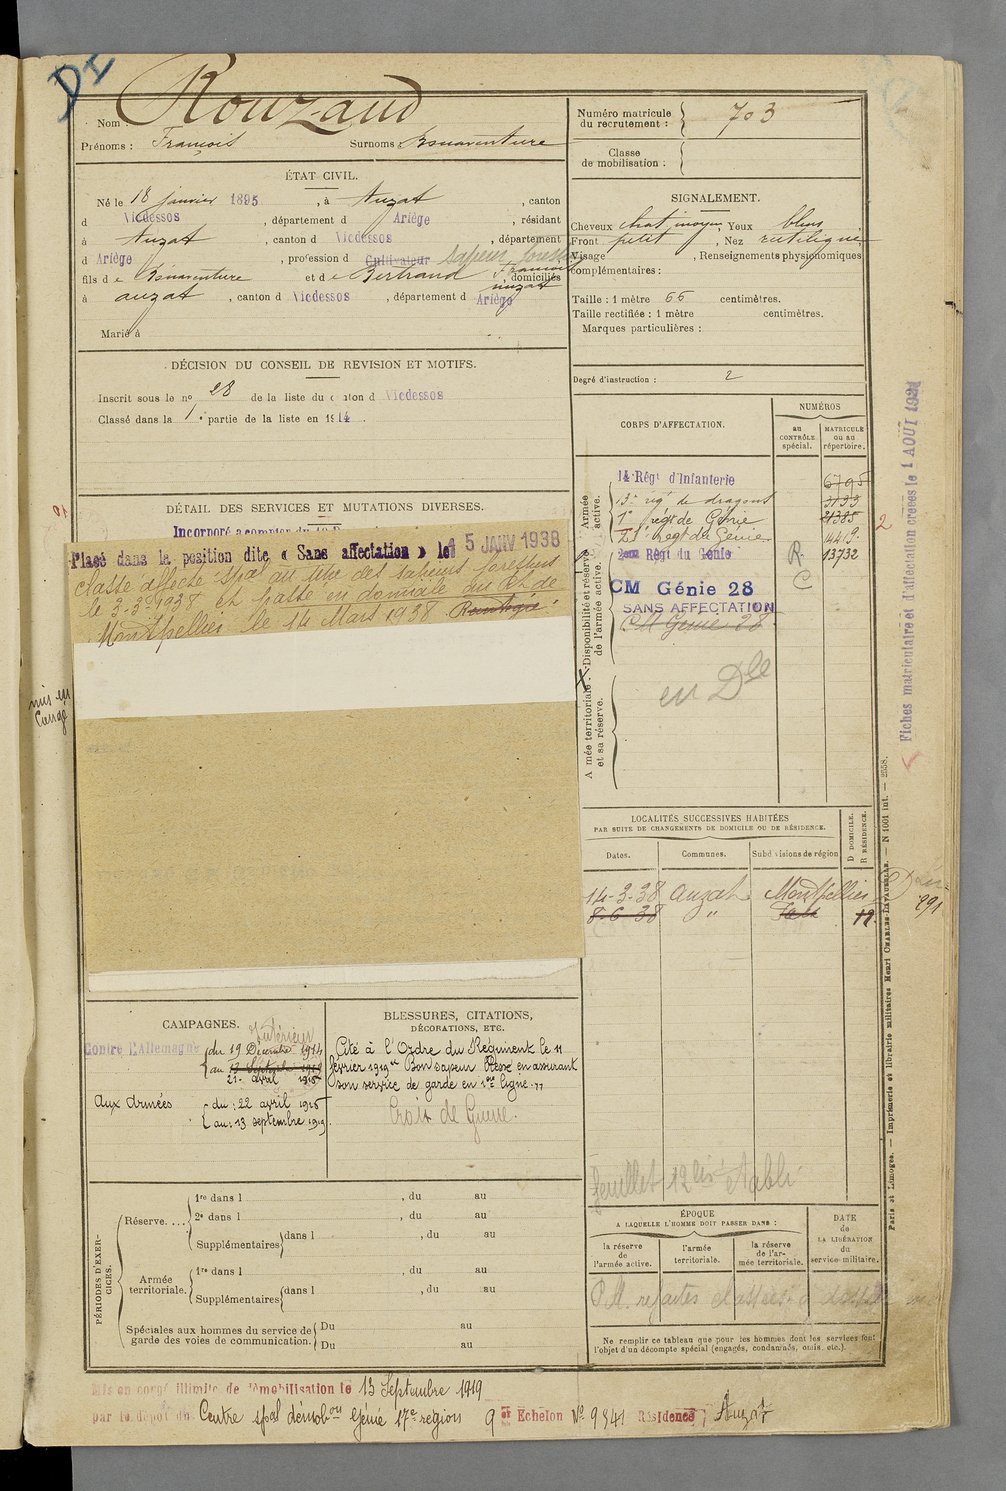 DI
Nom : Rouzaud
Prénoms : François Surnoms : Bonaventure
Numéro matricule du recrutement : 703
Classe de mobilisation :
ÉTAT CIVIL.
Né le 18 janvier 1895, à Auzat, canton
d Vicdessos, département d Ariège, résidant
à Auzat, canton d Vicdessos, département
d Ariège, profession d Cultivateur sapeur
fils de Bonaventure et de Bertrand Françoise, domiciliés
à auzat, canton d Vicdessos, département d Ariège
auzat
Marié à
SIGNALEMENT.
Cheveux chat moyen, Yeux bleus
Front petit, Nez rectiligne
Visage , Renseignements physionomiques
complémentaires :
Taille : 1 mètre 66 centimètres.
Taille rectifiée : 1 mètre centimètres.
Marques particulières :
Degré d'instruction : 2
DÉCISION DU CONSEIL DE REVISION ET MOTIFS.
Inscrit sous le no 28 de la liste du canton d Vicdessos
Classé dans la 1e partie de la liste en 1914
DÉTAIL DES SERVICES ET MUTATIONS DIVERSES.
Incorporé à compter du
Placé dans la position dite « Sans affectation » le 15 JANV 1938
classe affecté spal au titre des sapeurs forestiers
le 3-3-1938 et passe en domicile du Ct de
Montpellier le 14 Mars 1938.
mis en
Congé
CORPS D'AFFECTATION.
NUMÉROS
au CONTRÔLE spécial.
MATRICULE ou au répertoire.
Armée active.
14 Régt d'Infanterie 6795
13e régt de dragons 3133
1e régt de Génie 21385
21 Régt du Génie 14419
2
Disponibilité et réserve de l'armée active.
2eme Régt du Génie R.C 13732
CM Génie 28
SANS AFFECTATION
CM Génie 28
Armée territoriale et sa réserve.
en Dle
Fiches matriculaire et d'affectation créées le 1 AOUT 1921
LOCALITÉS SUCCESSIVES HABITÉES
PAR SUITE DE CHANGEMENTS DE DOMICILE OU DE RÉSIDENCE.
Dates. Communes. Subdivisions de région D DOMICILE. R RÉSIDENCE.
14-3-38 Auzat Montpellier D
8-6-38 "
291
CAMPAGNES.
Intérieur
Contre l'Allemagne du 19 Décembre 1914
au 13 Septembre 1919
21 avril 1915
Aux Armées du : 22 avril 1915
au : 13 septembre 1919
BLESSURES, CITATIONS, DÉCORATIONS, ETC.
Cité à l'Ordre du Régiment le 11
février 1919 "Bon sapeur Blessé en assurant
son service de garde en 1ère ligne."
Croix de Guerre.
feuillet 12 bis établi
PÉRIODES D'EXERCICES.
Réserve. ....
1re dans l , du au
2e dans l , du au
Supplémentaires dans l , du au
Armée territoriale.
1re dans l , du au
Supplémentaires dans l , du au
Spéciales aux hommes du service de garde des voies de communication.
Du au
Du au
ÉPOQUE
A LAQUELLE L'HOMME DOIT PASSER DANS :
la réserve de l'armée active.
l'armée territoriale.
la réserve de l'armée territoriale.
DATE de LA LIBÉRATION du service militaire.
Ne remplir ce tableau que pour les hommes dont les services font
l'objet d'un décompte spécial (engagés, condamnés, omis, etc.).
Paris et Limoges. — Imprimerie et librairie militaires Henri CHARLES-LAVAUZELLE. — N 1001 int. — 2558.
Mis en congé illimité de démobilisation le 13 Septembre 1919
par le dépôt du Centre spal démobon Génie 17e région 9e Echelon No 9341 Résidence : Auzat